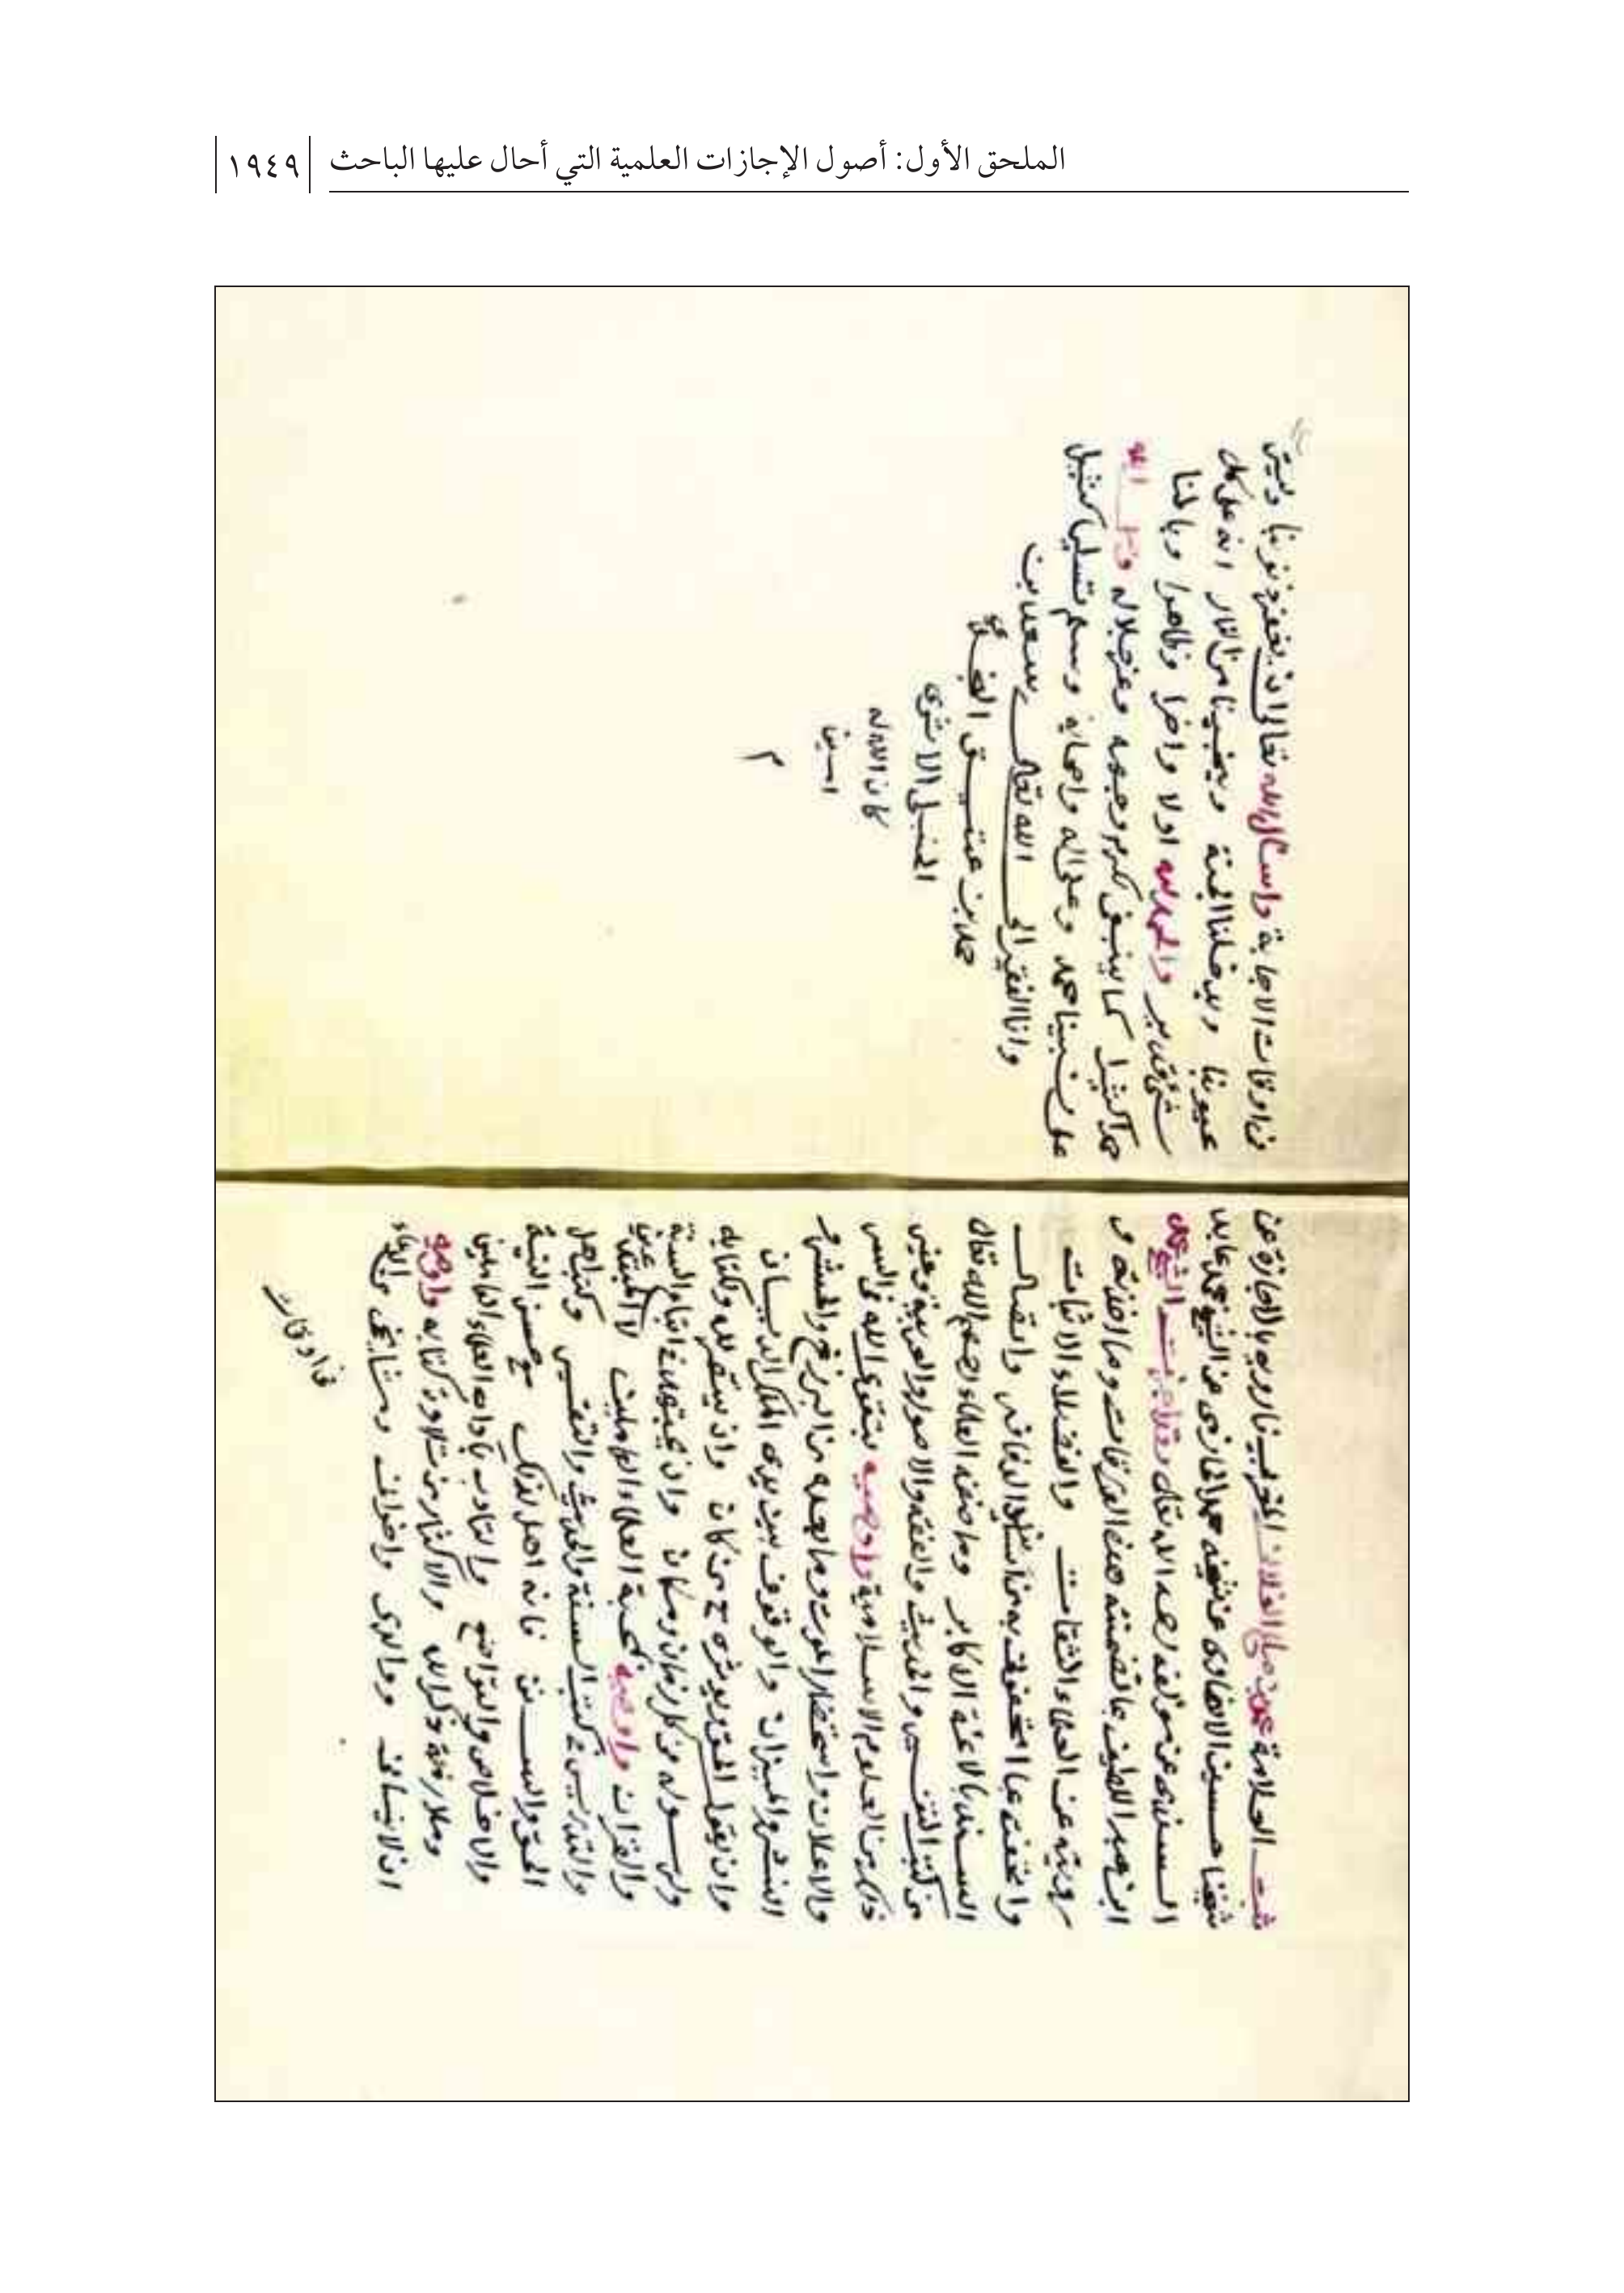 الملحق الأول: أصول الإجازات العلمية التي أحال عليها الباحث
١٩٤٩
ثبت العلامة صالح الفلاني المغربي فارويه بالاجازة عن
شيخنا حسين الانصاري عن شيخه محمد الحازمي عن الشيخ محمد عابد
السندي عن مولفه رحمه الله تعالى
ابن عبد اللطيف بما تضمنته هذه الورقات وما اخذته و
رويته عن العلماء الثقات والفضلاء الاثبات
السند بالائمة الاكابر وما صنفه العلماء رحمهم الله تعالى
من كتب التفسير والحديث والفقه والاصول والعربية وغير
ذلك من العلوم الاسلامية واوصيه بتقوى الله في السر
والاعلان واستحضار الموت وما بعده من البرزخ والمحشر
النشر والميزان والوقوف بين يدي الملك الديان
وان يقول الحق ويوثره مع من كان وان ينتصر لله ولكتابه
ولرسوله في كل زمان ومكان وان يجتهد في اتباع السنة
والقران واوصيه بمحبة العلماء العاملين لا المبتدعين
والتدريس في كتب السنة والحديث والتفسير
الحق والسنن فانه اهل لذلك مع حسن النية
والاخلاص والتواضع والتادب بآداب العلماء العاملين
وملازمة ذكر الله والاكثار من تلاوة كتابه واوصيه
ان لا ينساني ووالدي واخواني ومشايخي من الدعاء
في اوقات
في اوقات الاجابة واسأل الله تعالى ان يغفر ذنوبنا ويستر
عيوبنا ويدخلنا الجنة وينجينا من النار انه على كل
شيء قدير والحمد لله اولا واخرا وظاهرا وباطنا
حمدا كثيرا كما ينبغي لكرم وجهه وعز جلاله وصلى الله
على نبينا محمد وعلى اله واصحابه وسلم تسليما كثيرا
وانا الفقير الى الله تعالى سعد ابن
حمد بن عتيق النجدي
الحنبلي الاثري
كان الله له
امين
م